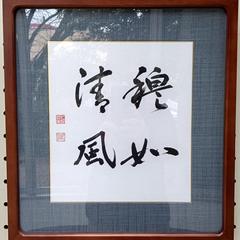 穆如
清風